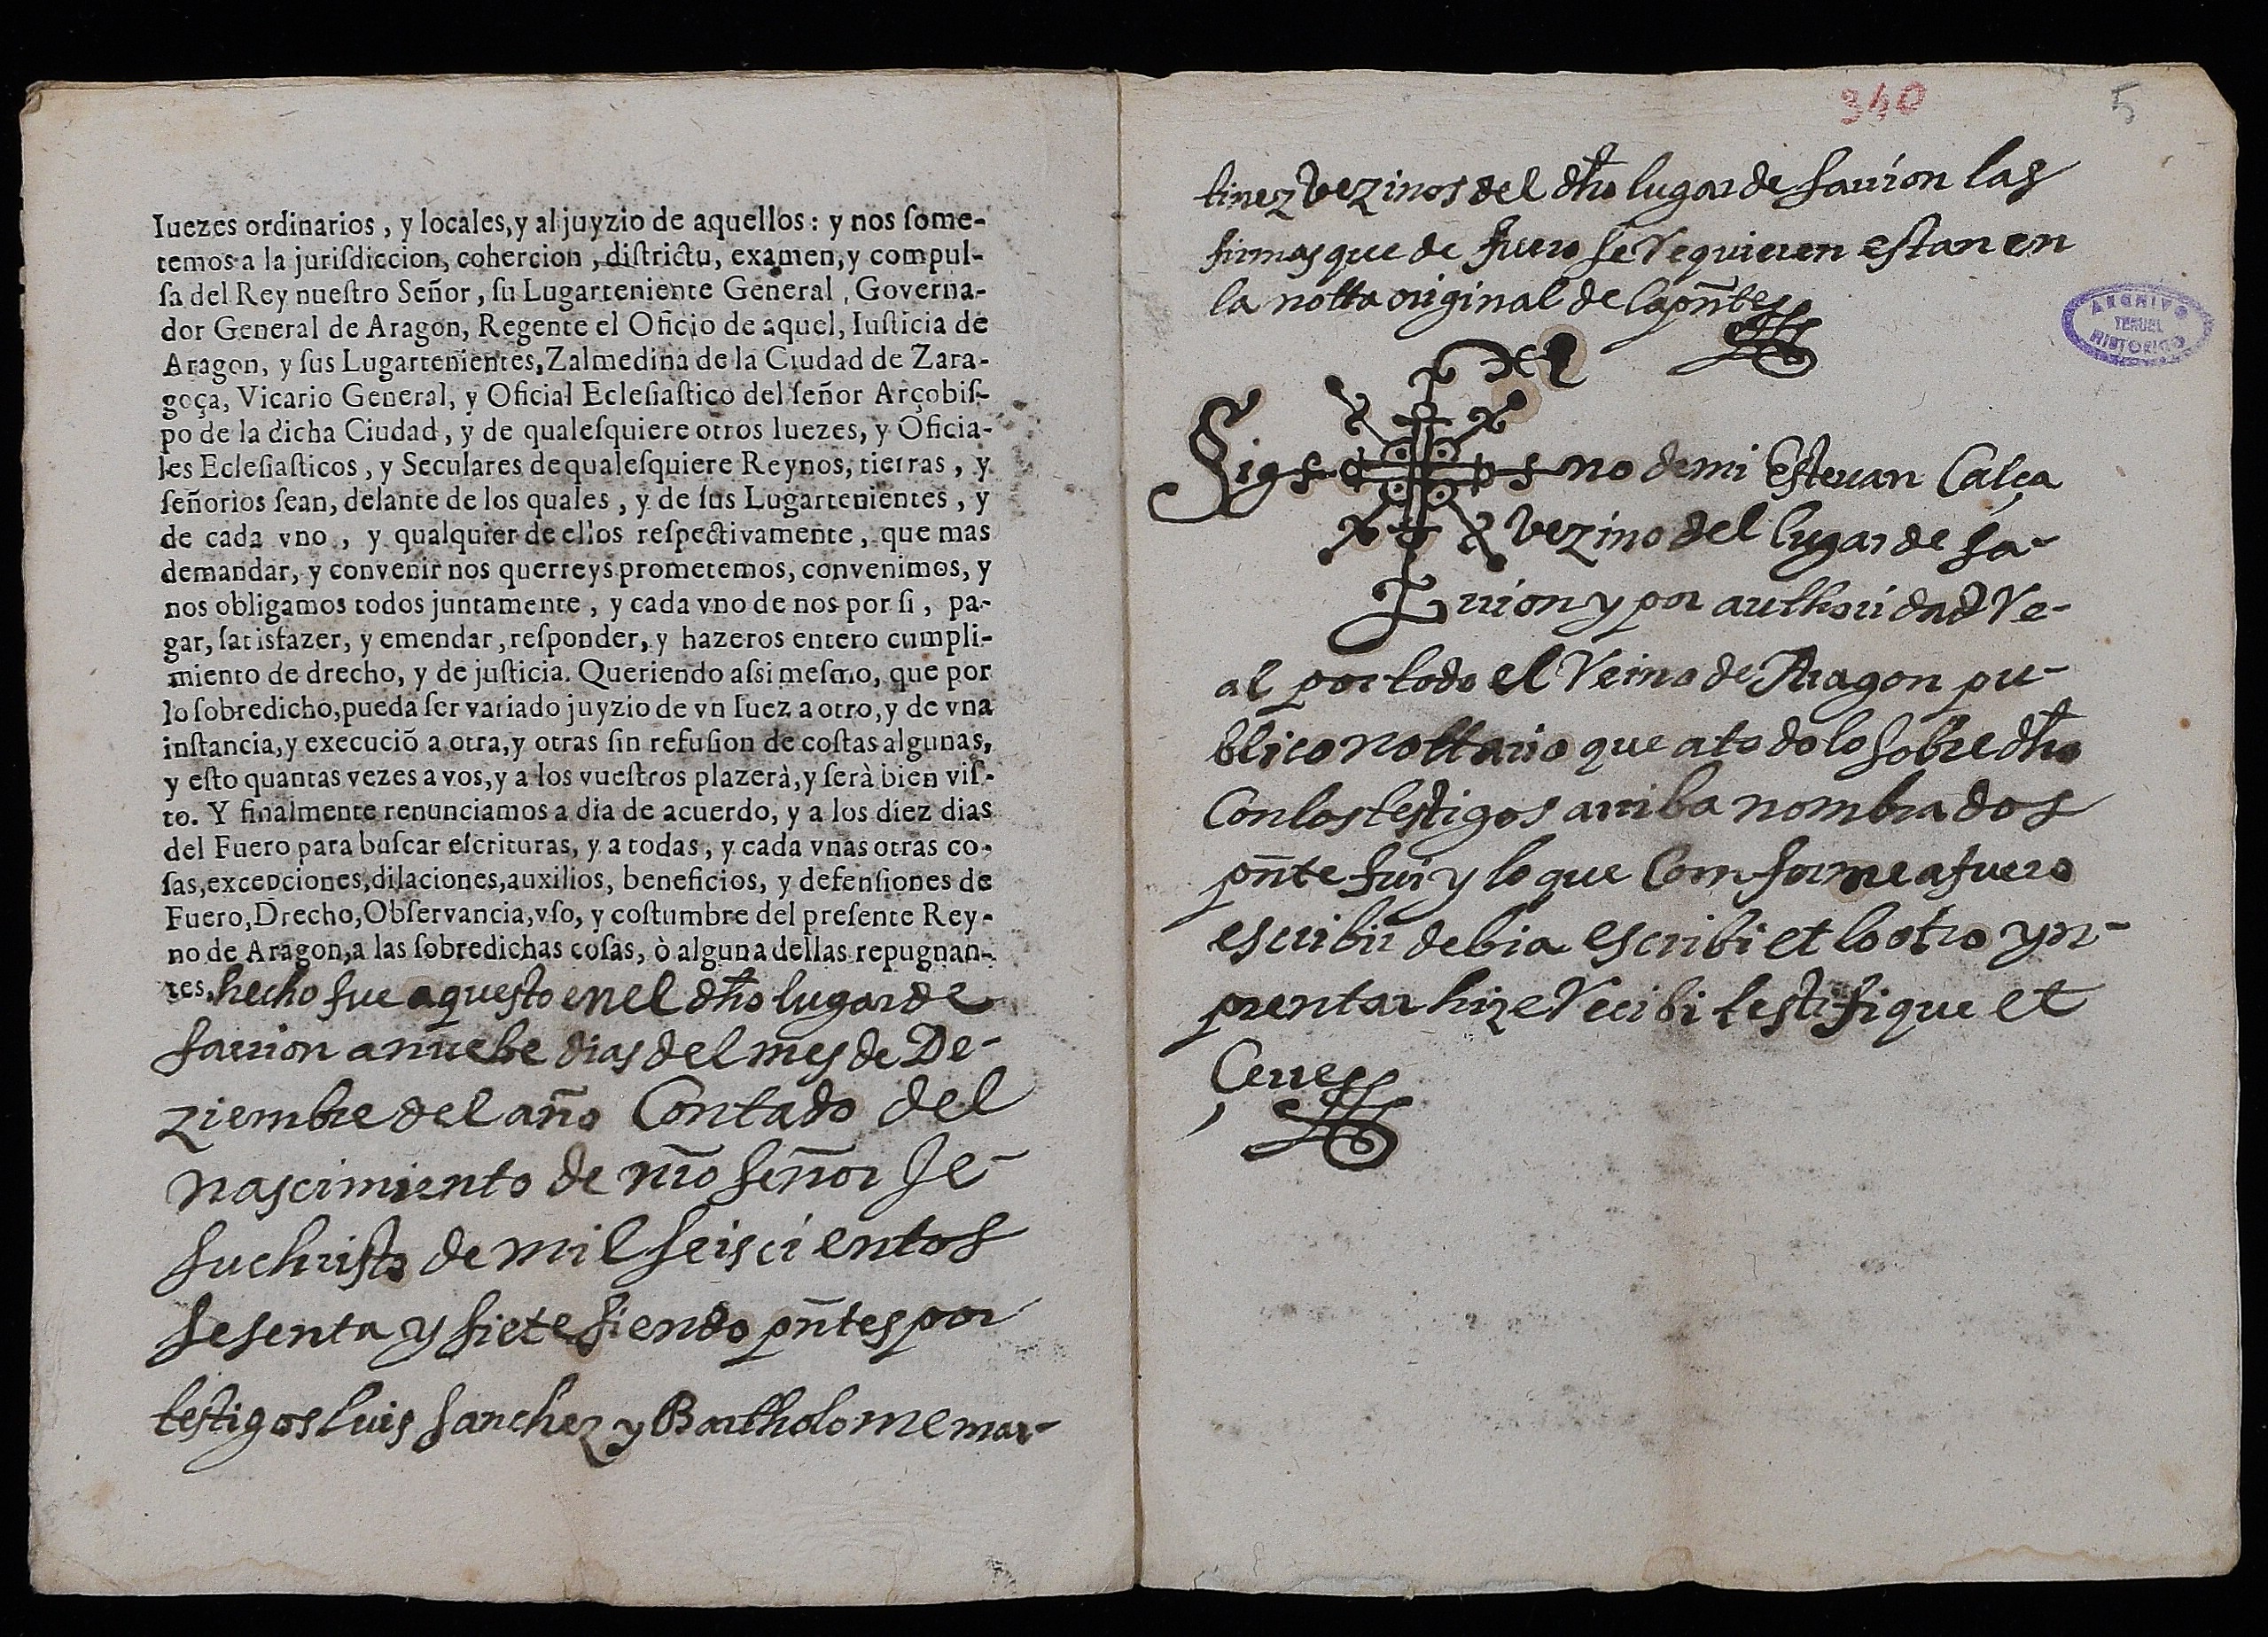 Iuezes ordinarios, y locales, y al juyzio de aquellos: y nos some-
temos a la jurisdiccion, cohercion, districtu, examen, y compul-
sa del Rey nuestro Señor, su Lugarteniente General, Governa-
dor General de Aragon, Regente el Oficio de aquel, Iusticia de
Aragon, y sus Lugartenientes, Zalmedina de la Ciudad de Zara-
goça, Vicario General, y Oficial Eclesiastico del señor Arçobis-
po de la dicha Ciudad, y de qualesquiere otros Iuezes, y Oficia-
les Eclesiasticos, y Seculares de qualesquiere Reynos, tierras, y
señorios sean, delante de los quales, y de sus Lugartenientes, y
de cada vno, y qualquier de ellos respectivamente, que mas
demandar, y convenir nos querreys prometemos, convenimos, y
nos obligamos todos juntamente, y cada vno de nos por si, pa-
gar, satisfazer, y emendar, responder, y hazeros entero cumpli-
miento de drecho, y de justicia. Queriendo assi mesmo, que por
lo sobredicho, pueda ser variado juyzio de vn Iuez a otro, y de vna
instancia, y execuciõ a otra, y otras sin refusion de costas algunas,
y esto quantas vezes a vos, y a los vuestros plazerà, y serà bien vis-
to. Y finalmente renunciamos a dia de acuerdo, y a los diez dias
del Fuero para buscar escrituras, y a todas, y cada vnas otras co-
sas, excepciones, dilaciones, auxilios, beneficios, y defensiones de
Fuero, Drecho, Observancia, vso, y costumbre del presente Rey-
no de Aragon, a las sobredichas cosas, ò alguna dellas repugnan-
tes. hecho fue aquesto en el dho lugar de
sarrion a nuebe dias del mes de De-
ziembre del año Contado del
nascimiento de nro señor Je-
suchristo de mil seiscientos
sesenta y siete siendo pntes por
testigos luis sanchez y Bartholome mar-
340
5
tinez vezinos del dho lugar de sarrion las
firmas que de fuero se requieren estan en
la notta original de la pnte
ARCHIVO
TERUEL
HISTORICO
Sig no de mi Estevan Calça
vezino del lugar de sa-
rrion y por authoridad Re-
al por todo el Reino de Aragon pu-
blico nottario que a todo lo sobredho
Con los testigos arriba nombrados
pnte fui y lo que Comforme a fuero
escribir debia escribi et lo otro ym-
prentar hize recibi testifique et
Cerre